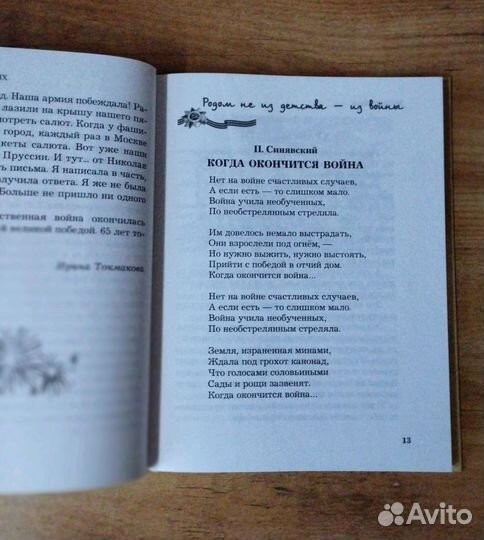 их
д. Наша армия побеждала! Ра-
лазили на крышу нашего пя-
отреть салют. Когда у фаши-
город, каждый раз в Москве
кеты салюта. Вот уже наши
Пруссии. И тут... от Николая
ть письма. Я написала в часть,
олучила ответа. Я же не была
Больше не пришло ни одного
ственная война окончилась
й великой победой. 65 лет то-
Ирина Токмакова
Родом не из детства — из войны
П. Синявский
КОГДА ОКОНЧИТСЯ ВОЙНА
Нет на войне счастливых случаев,
А если есть — то слишком мало.
Война учила необученных,
По необстрелянным стреляла.
Им довелось немало выстрадать,
Они взрослели под огнём, —
Но нужно выжить, нужно выстоять,
Прийти с победой в отчий дом.
Когда окончится война...
Нет на войне счастливых случаев,
А если есть — то слишком мало.
Война учила необученных,
По необстрелянным стреляла.
Земля, израненная минами,
Ждала под грохот канонад,
Что голосами соловьиными
Сады и рощи зазвенят.
Когда окончится война...
13
Avito